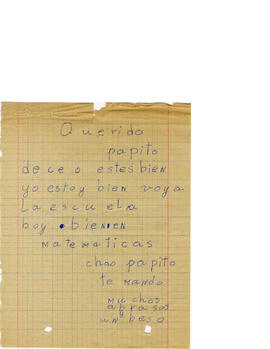 Querido
papito
deceo estes bien
yo estoy bien voya
La escuela
boy bien en
matematicas
chao papito
te mando
muchos
abrasos
un beso